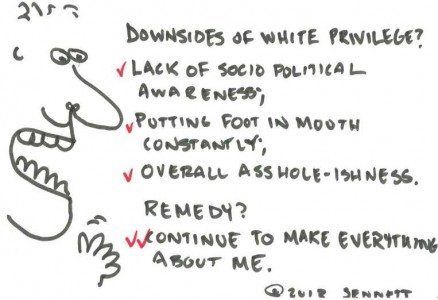 DOWNSIDES OF WHITE PRIVILEGE?
✓LACK OF SOCIO POLITICAL
AWARENESS;
✓PUTTING FOOT IN MOUTH
CONSTANTLY;
✓OVERALL ASSHOLE-ISHNESS.
REMEDY?
✓✓CONTINUE TO MAKE EVERYTHING
ABOUT ME.
©2012 SENNETT